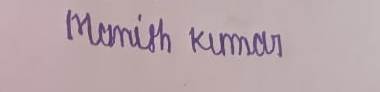 Manish Kumar